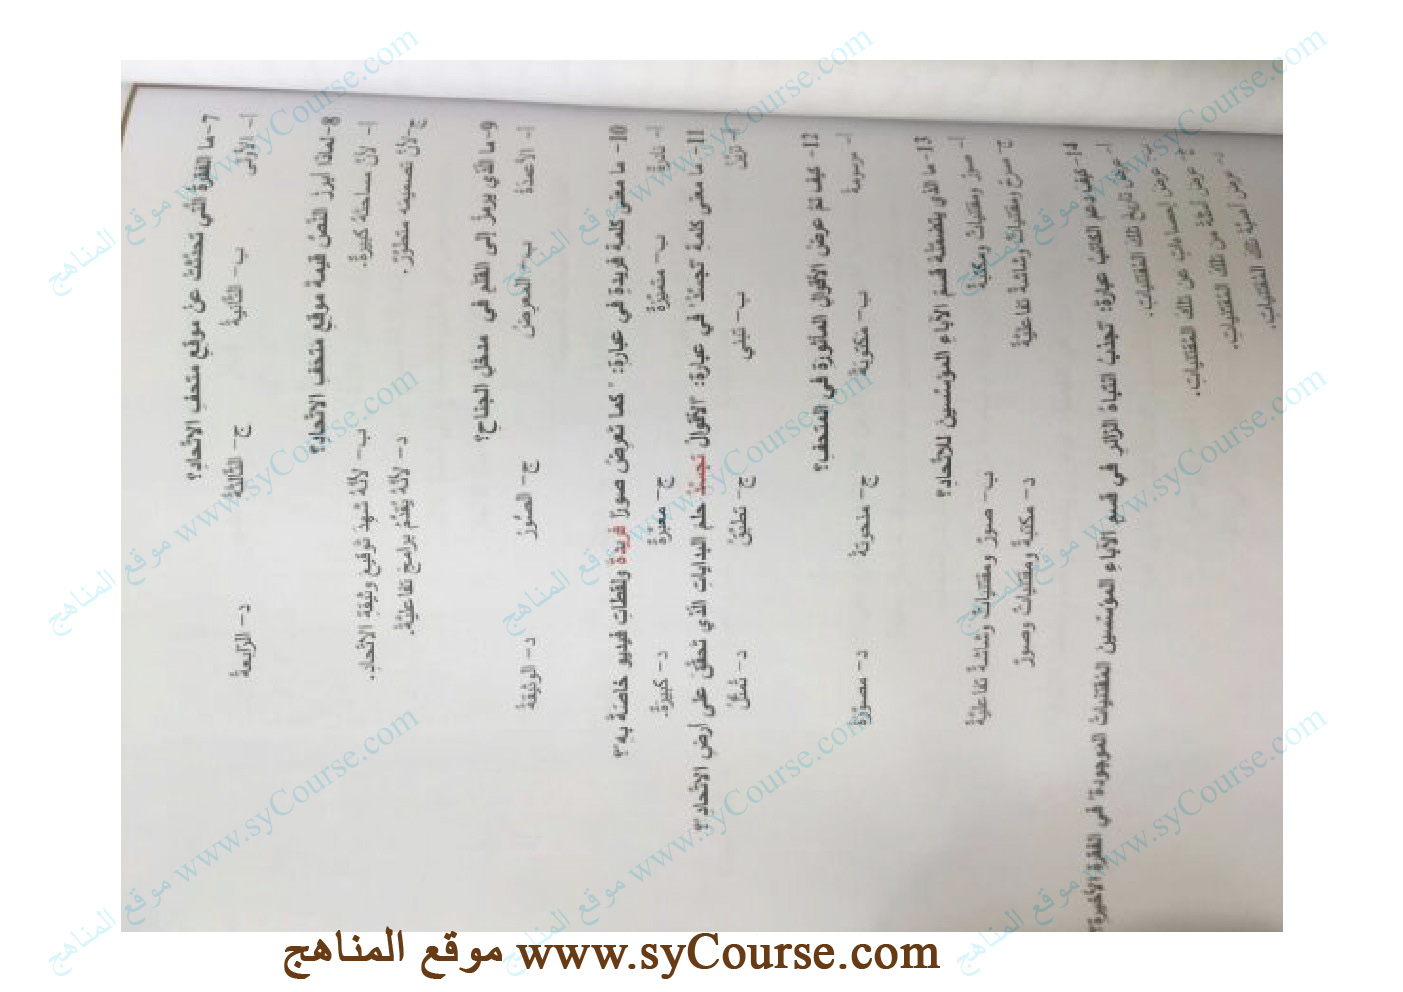 7-ما الفقرةُ الَّتي تحدَّثتْ عنْ موقعِ متحفِ الاتّحادِ؟
أ- الأولى ب- الثَّانيةُ ج- الثَّالثةُ د- الرَّابعةُ
8-لماذا أبرزَ النَّصُّ قيمةَ موقعِ متحفِ الاتّحادِ؟
أ- لأنَّ مساحتَهُ كبيرةٌ. ب- لأنَّهُ شهِدَ توقيعَ وثيقةِ الاتّحادِ.
ج-لأنَّ تصميمَه متطوِّرٌ. د- لأنَّهُ يُقدِّمُ برامجَ تفاعليَّةً.
9-ما الَّذي يرمزُ إلى القلمِ في مدخلِ الجناحِ؟
أ- الأعمدةُ ب- المَعرِضُ ج- الصُّورُ د- الوثيقةُ
10- ما معنى كلمةِ فريدةٍ في عبارةِ: "كما تعرِضُ صورًا فريدةً ولقطاتِ فيديو خاصَّةً بِهِ"؟
أ- نادرةً ب- متميّزةً ج- معبّرةً د- كبيرةً.
11- ما معنى كلمة تجسّدُ" في عبارة: "الأقوالُ تجسّدُ حلم البداياتِ الَّذي تحقَّقَ على أرضِ الاتّحادِ"؟
ب- تبني ج- تطبّقُ د- تُمثّلُ
12- كيفَ تمَّ عرضُ الأقوالِ المأثورةِ في المتحفِ؟
أ- مرسومةً ب- مكتوبةً ج- منحوتةً د- مصوّرةً
13-ما الَّذي يتضمَّنُهُ قسمُ الآباءِ المؤسّسينَ للاتّحادِ؟
أ- صورٌ ومقتنياتٌ ومكتبةٌ ب- صورٌ ومقتنياتٌ وشاشةٌ تفاعليّةٌ
ج- مسرحٌ ومقتنياتٌ وشاشةٌ تفاعليّةٌ د- مكتبةٌ ومقتنياتٌ وصورٌ
14-كيفَ دعم الكاتبُ عبارةَ: تجذبُ انتباهَ الزَّائرِ في قسمِ الآباءِ المؤسّسينَ المُقتنياتُ الموجودةُ" في الفقرةِ الأخيرةِ؟
أ- عرضُ تاريخِ تلكَ المُقتنياتِ.
ب- عرضُ إحصاءاتٍ عن تلكَ المُقتنياتِ.
ج- عرضُ أمثلةٍ عن تلكَ المُقتنياتِ.
د- عرضُ أهميَّةِ تلكَ المُقتنياتِ.
موقع المناهج www.syCourse.com